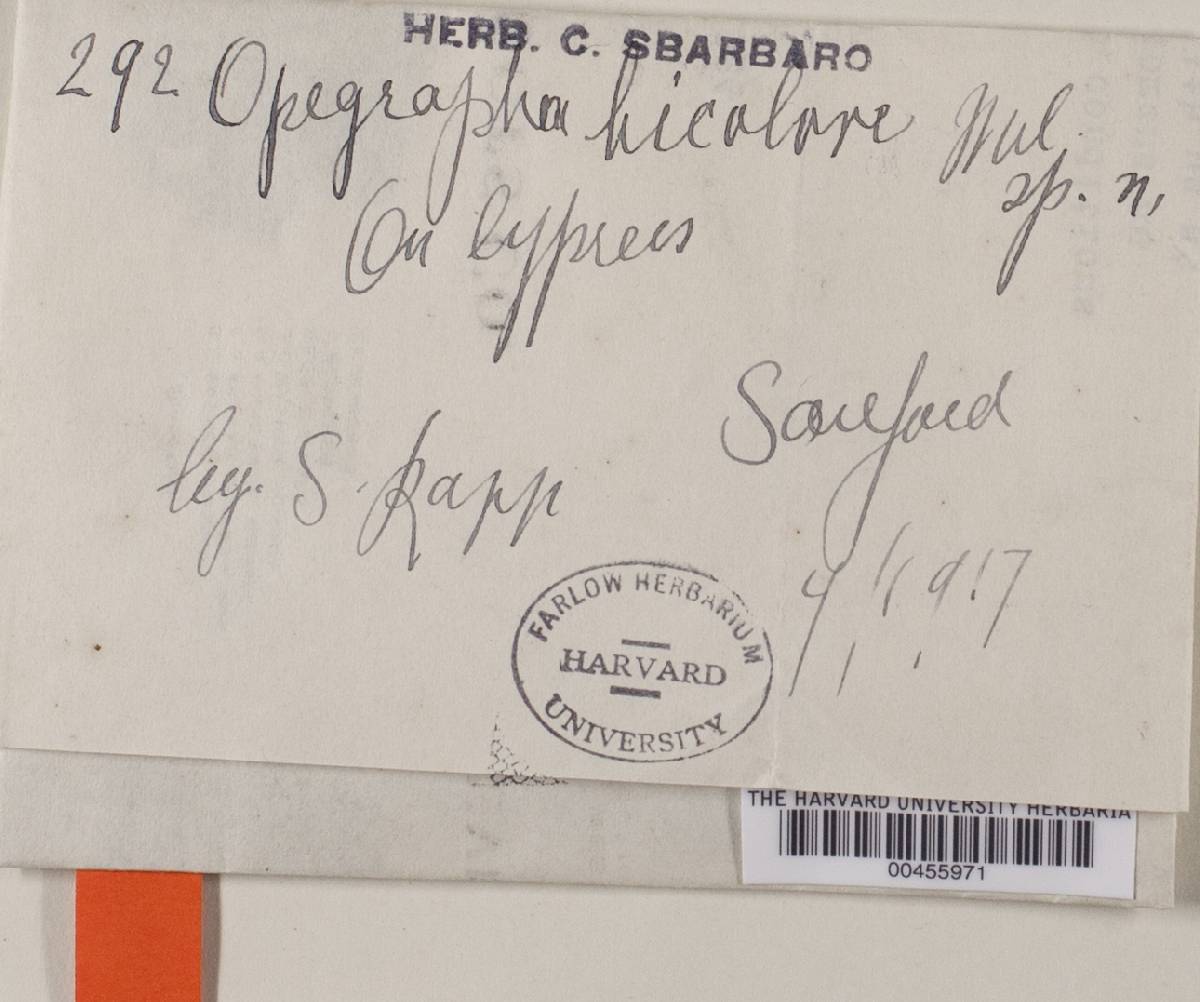 HERB. C. SBARBARO
292 Opegrapha bicolore Wil.
sp. n.
On Cypress
Sanford
leg. S. Rapp
FARLOW HERBARIUM
HARVARD
UNIVERSITY
THE HARVARD UNIVERSITY HERBARIA
00455971